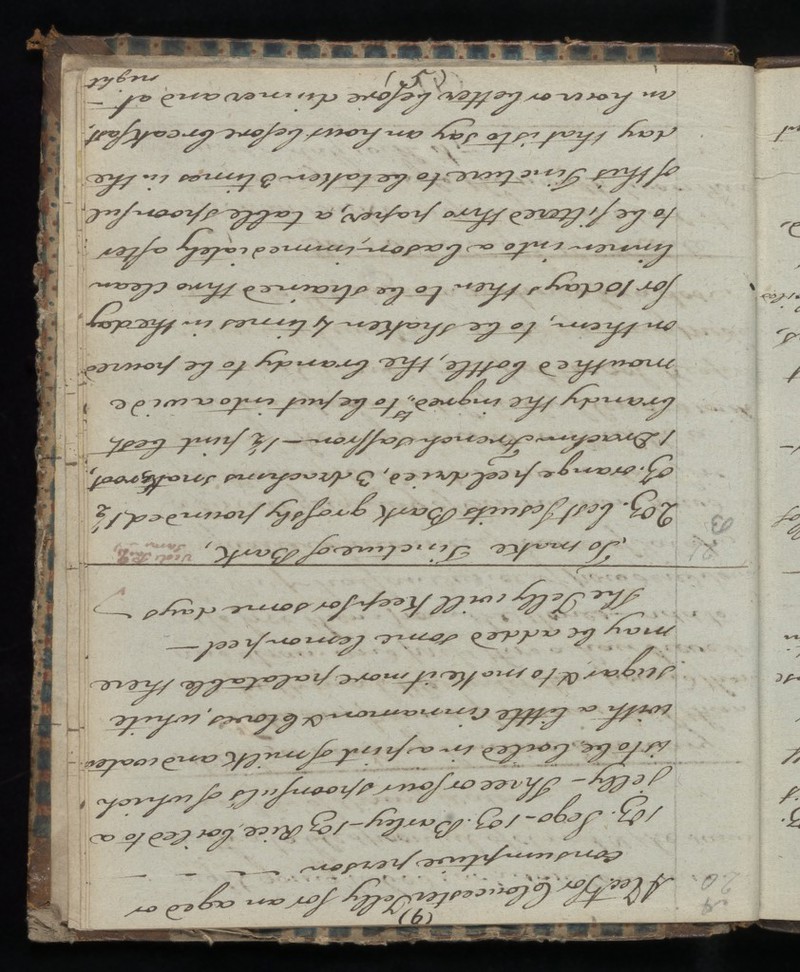 (6)
for Gloucester Jelly for an aged or
consumptive person
1 oz. Sego - 1 oz. Barley - 1 oz Rice, boiled to a
Jelly - Three or four spoonfuls of which
is to be boiled in a pint of milk and water
with a little Cinnamon & Cloves, white
sugar & to make it more palatable there
may be added some lemon peel -
The Jelly will keep for some days
To make Tincture of Bark,
2 oz. best Jesuits Bark grossly pounded 1½
oz. orange peel dried, 3 drachms snakeroot,
1 Drachm French saffron - 1½ pint best
brandy the ingredts. to be put into a wide
mouthed bottle, the brandy to be poured
on them, to be shaken 4 times in the day
for 10 days then to be strained thro clean
linnen into a bason, immediately after
to be filtered thro paper, a table spoonful
of this Tincture to be taken 3 times in the
day that is to say an hour before breakfast,
an hour or better before dinner and at -
night